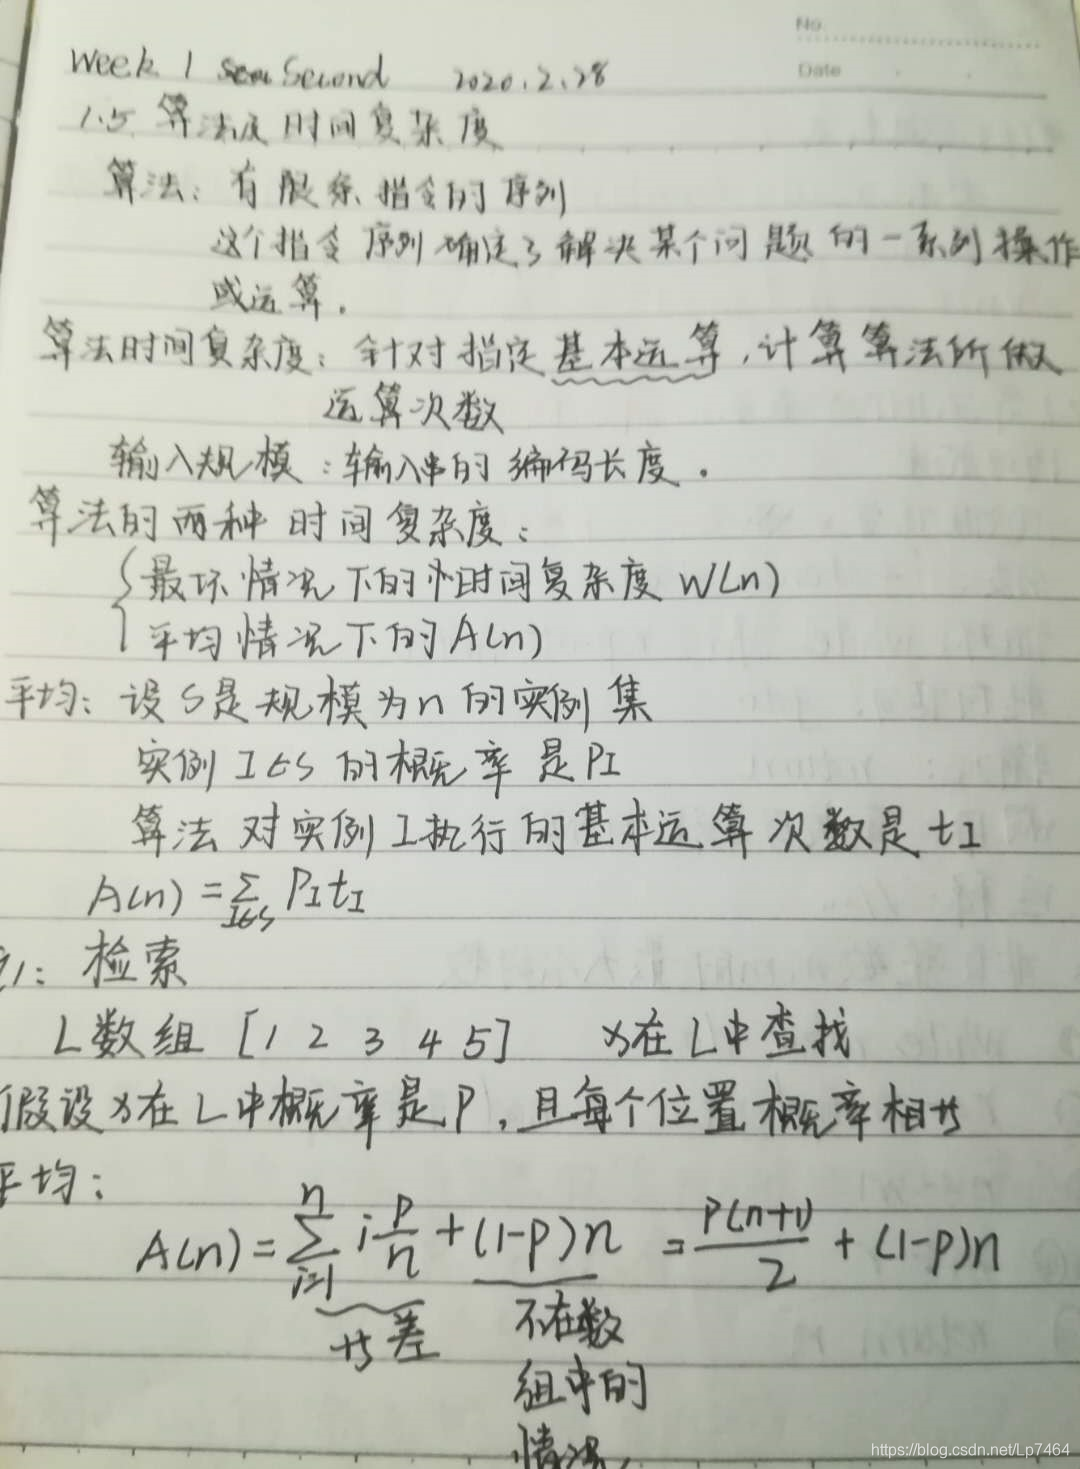 No.
Date
Week 1 Second 2020.2.28
1.5 算法及时间复杂度
算法: 有限条指令的序列
这个指令序列确定了解决某个问题的一系列操作
或运算.
算法时间复杂度: 针对指定基本运算,计算算法所做
运算次数
输入规模:输入串的编码长度.
算法的两种时间复杂度:
最坏情况下的时间复杂度 W(n)
平均情况下的A(n)
平均: 设S是规模为n的实例集
实例I∈S的概率是PI
算法对实例I执行的基本运算次数是tI
A(n) = ∑ I∈S PI tI
1: 检索
L数组 [1 2 3 4 5] x在L中查找
假设x在L中概率是P,且每个位置概率相等
平均:
A(n) = ∑ i=1 n i p/n + (1-p)n = P(n+1)/2 + (1-p)n
等差 不在数
组中的
情况.
https://blog.csdn.net/Lp7464